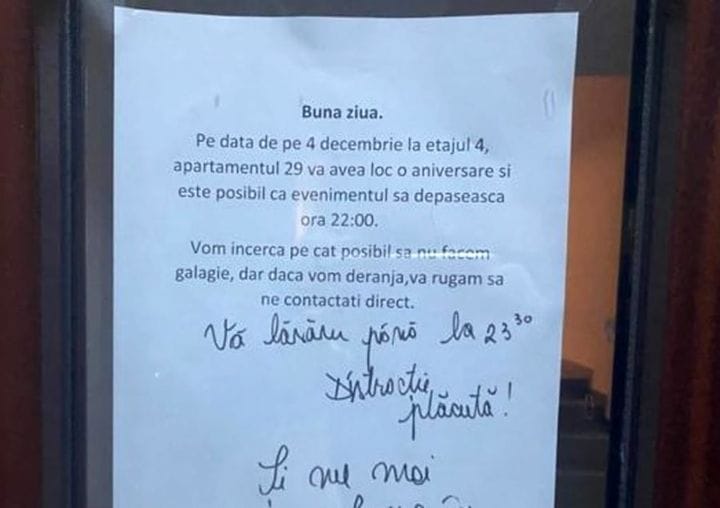 Buna ziua.
Pe data de pe 4 decembrie la etajul 4,
apartamentul 29 va avea loc o aniversare si
este posibil ca evenimentul sa depaseasca
ora 22:00.
Vom incerca pe cat posibil sa nu facem
galagie, dar daca vom deranja,va rugam sa
ne contactati direct.
Vă lăsăm până la 23³⁰
Distracție
plăcută!
Și nu mai